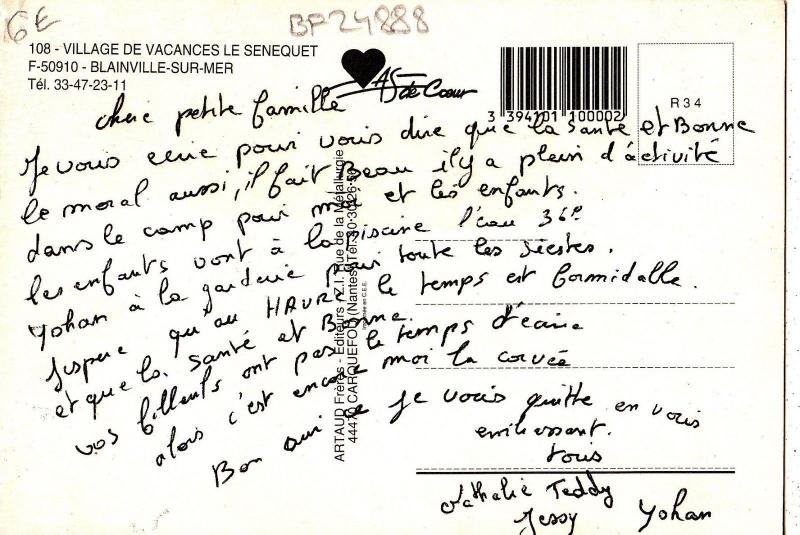 6E
BF24888
108 - VILLAGE DE VACANCES LE SENEQUET
F-50910 - BLAINVILLE-SUR-MER
Tél. 33-47-23-11
AS de Cœur
3 394101 100002
R 3 4
ARTAUD Frères - Editeurs - Z.I. Rue de la Métallurgie
44470 CARQUEFOU (Nantes) Tél.
chere petite famille
Je vous ecrie pour vous dire que la santé et Bonne
le moral aussi, il fait Beau il y a plein d'activité
dans le camp pour moi et les enfants.
les enfants vont à la piscine l'eau 36°
Yohan à la garderie pour toute les siestes.
Jspere qu'au HAVRE le temps est formidalle.
et que la santé et Bonne.
vos filleuls ont pas le temps d'ecrire
alors c'est encore moi la corvée
Bon sur ce je vous quitte en vous
embrassant.
tous
Nathalie Teddy
Jessy Yohan